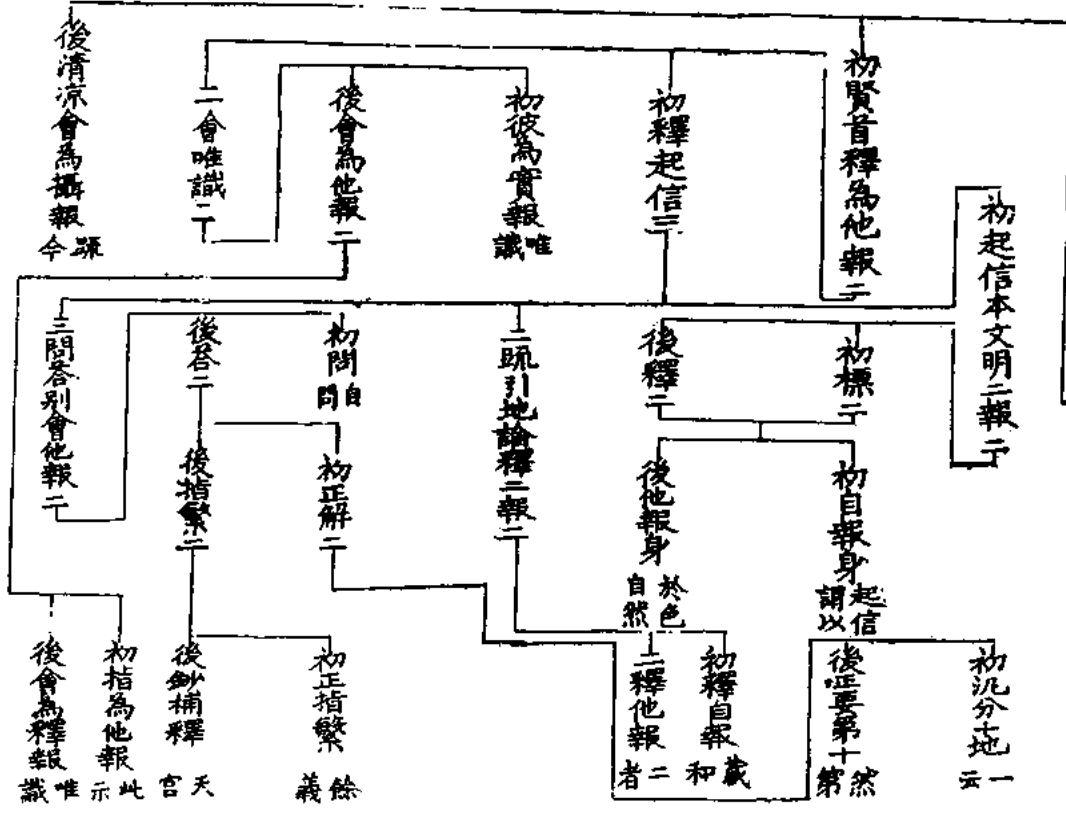 初賢首釋為他報二
初釋起信三
初彼為實報
唯識
後會為他報二
二會唯識二
後清凉會為攝報
疏今
初起信本文明二報二
初標二
後釋二
二疏引地論釋二報二
初問
自問
後答二
三問答別會他報二
初自報身
起信謂以
後他報身
於色自然
初正解二
後指繁二
初汎分十地
一云
後正要第十
然第
初釋自報
藏和
二釋他報
二者
初正指繁
餘義
後鈔補釋
天宮
初指為他報
此示
後會為釋報
唯識